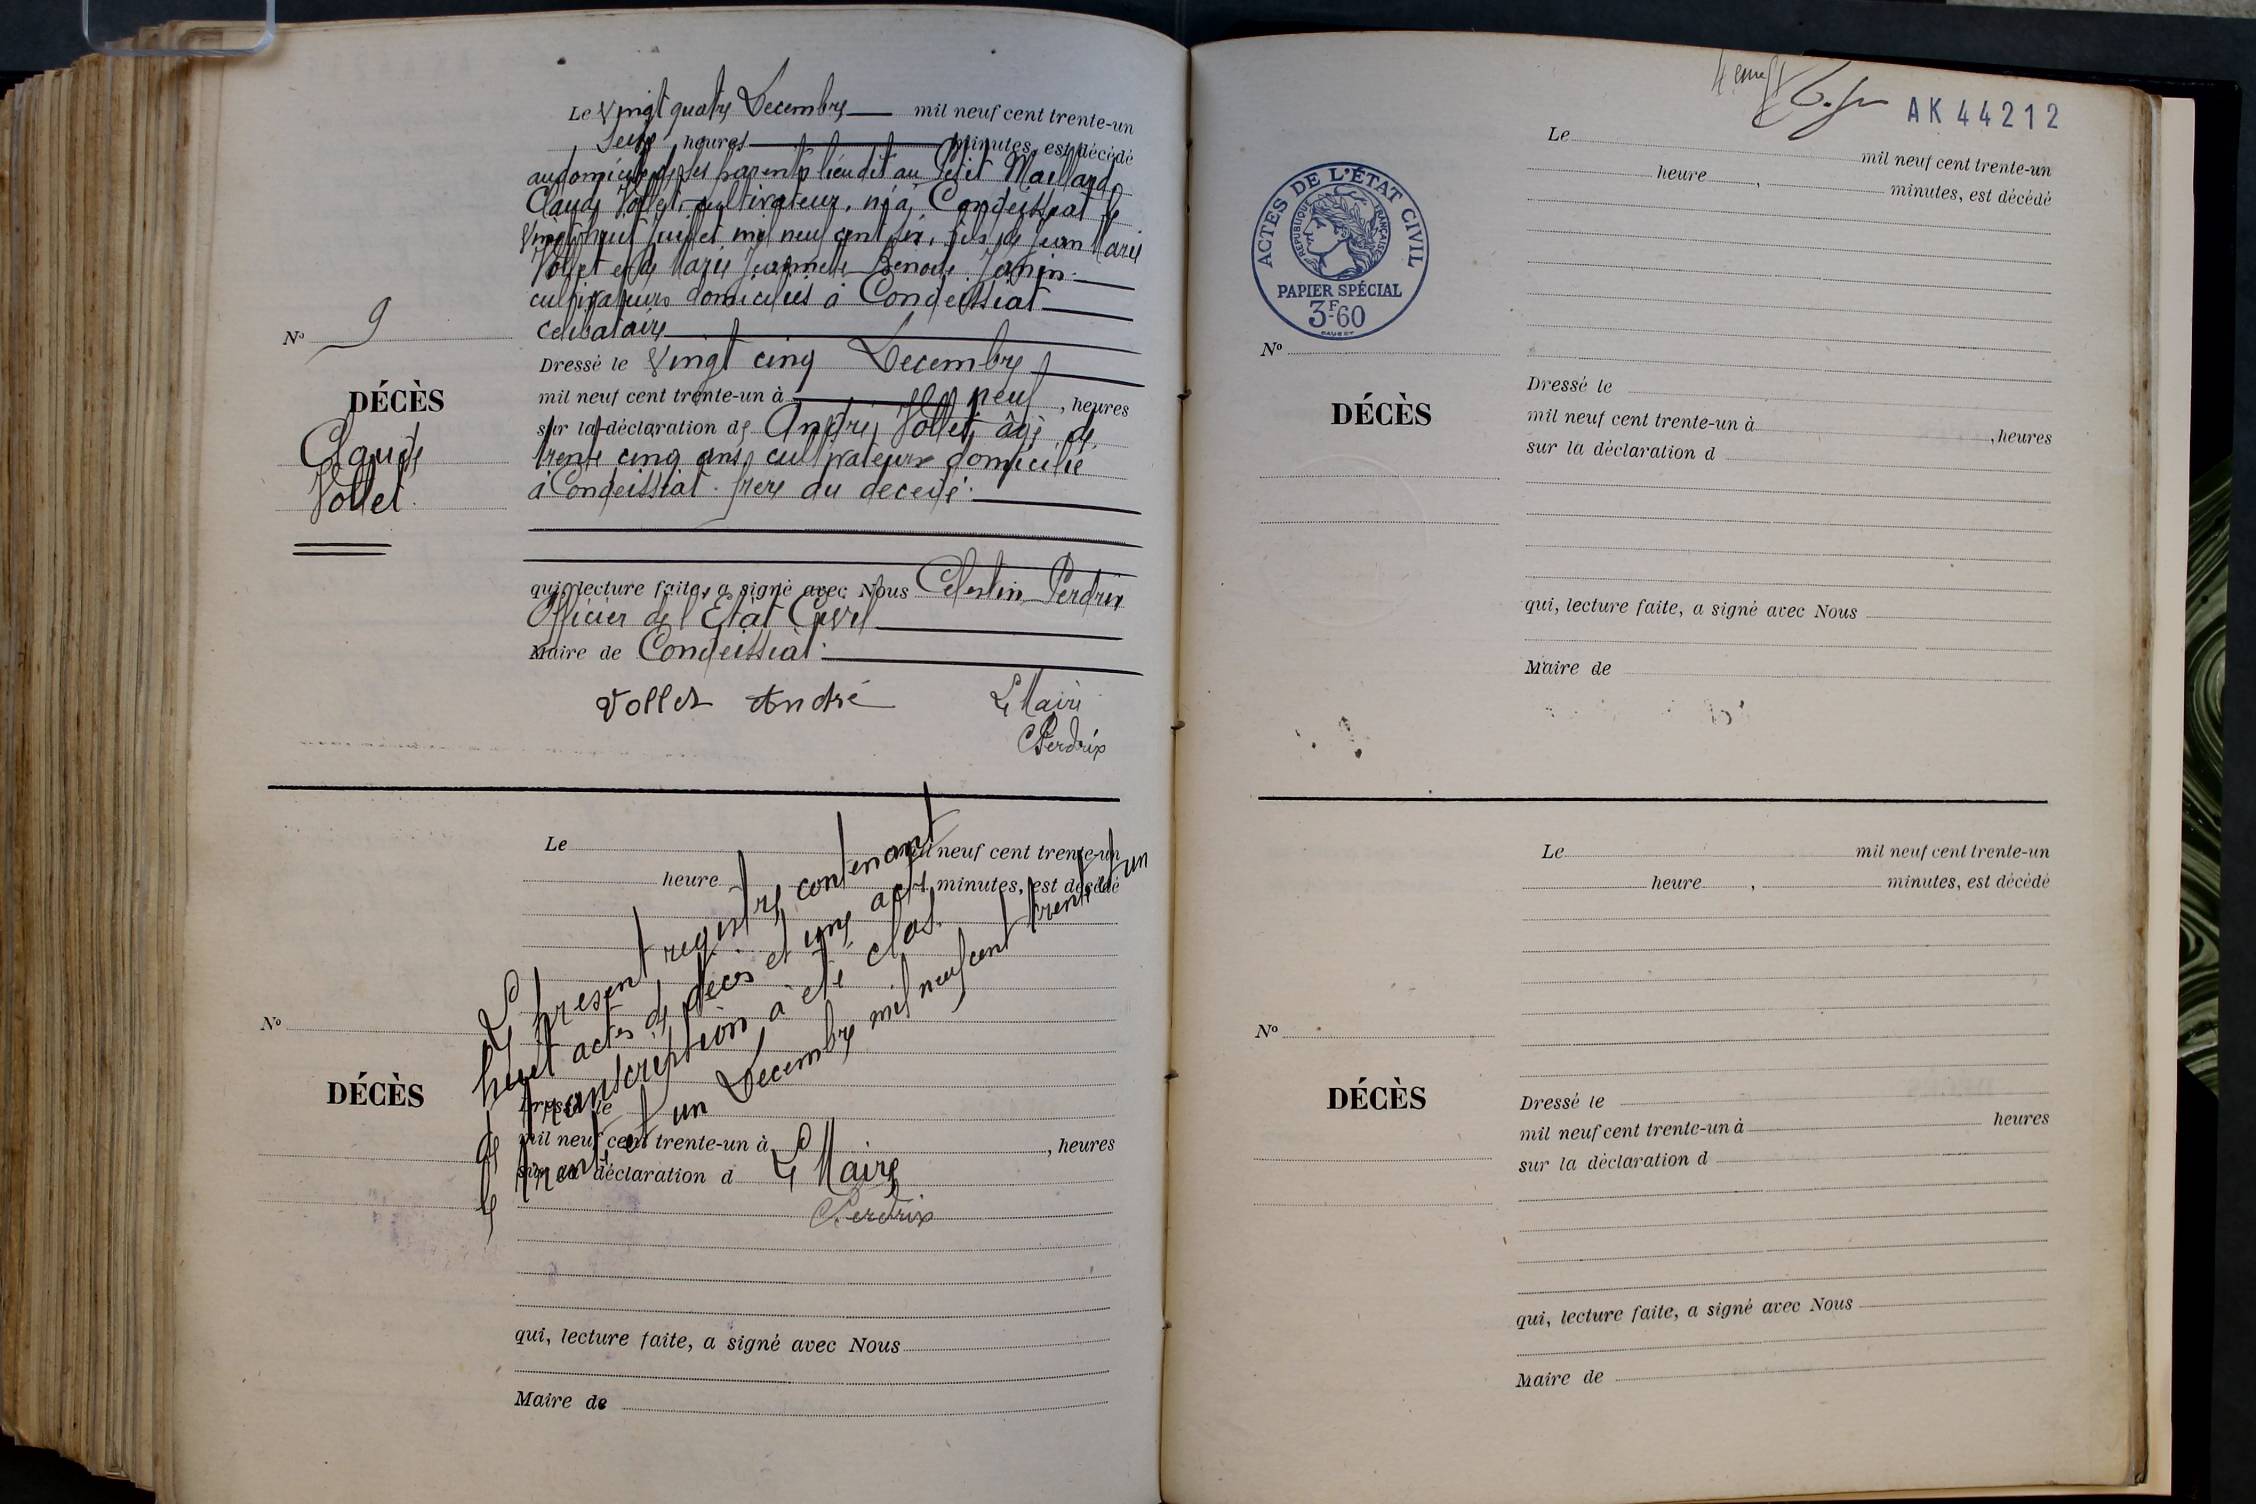 Le vingt quatre Decembre mil neuf cent trente-un
Seize heures minutes, est décédé
au domicile de ses parents lieu dit au Petit Maillard
Claude Vollet, cultivateur, né à Condeissiat le
Vingt huit Juillet mil neuf cent six, fils de Jean Marie
Vollet et de Marie Jeannette Benoite Janin
cultivateurs domiciliés à Condeissiat
celibataire
No 9
DÉCÈS
Claude
Vollet
Dressé le vingt cinq Decembre
mil neuf cent trente-un à neuf, heures
sur la déclaration de André Vollet, âgé de
trente cinq ans, cultivateur domicilié
à Condeissiat. frere du decedé.
qui, lecture faite, a signé avec Nous Celestin Perdrix
Officier de l'Etat Civil
Maire de Condeissiat
Vollet André
Le Maire
CPerdrix
Le mil neuf cent trente-un
heure minutes, est décédé
Le présent registre contenant
huit actes de décès et une acte
de transcription à été clos
le trente et un Decembre mil neuf cent trente et un
Le Maire
C Perdrix
No
DÉCÈS
Dressé le
mil neuf cent trente-un à , heures
sur la déclaration d
qui, lecture faite, a signé avec Nous
Maire de
AK 44212
ACTES DE L'ÉTAT CIVIL
RÉPUBLIQUE FRANÇAISE
PAPIER SPÉCIAL
3F60
Le mil neuf cent trente-un
heure , minutes, est décédé
No
DÉCÈS
Dressé le
mil neuf cent trente-un à , heures
sur la déclaration d
qui, lecture faite, a signé avec Nous
Maire de
Le mil neuf cent trente-un
heure , minutes, est décédé
No
DÉCÈS
Dressé le
mil neuf cent trente-un à heures
sur la déclaration d
qui, lecture faite, a signé avec Nous
Maire de